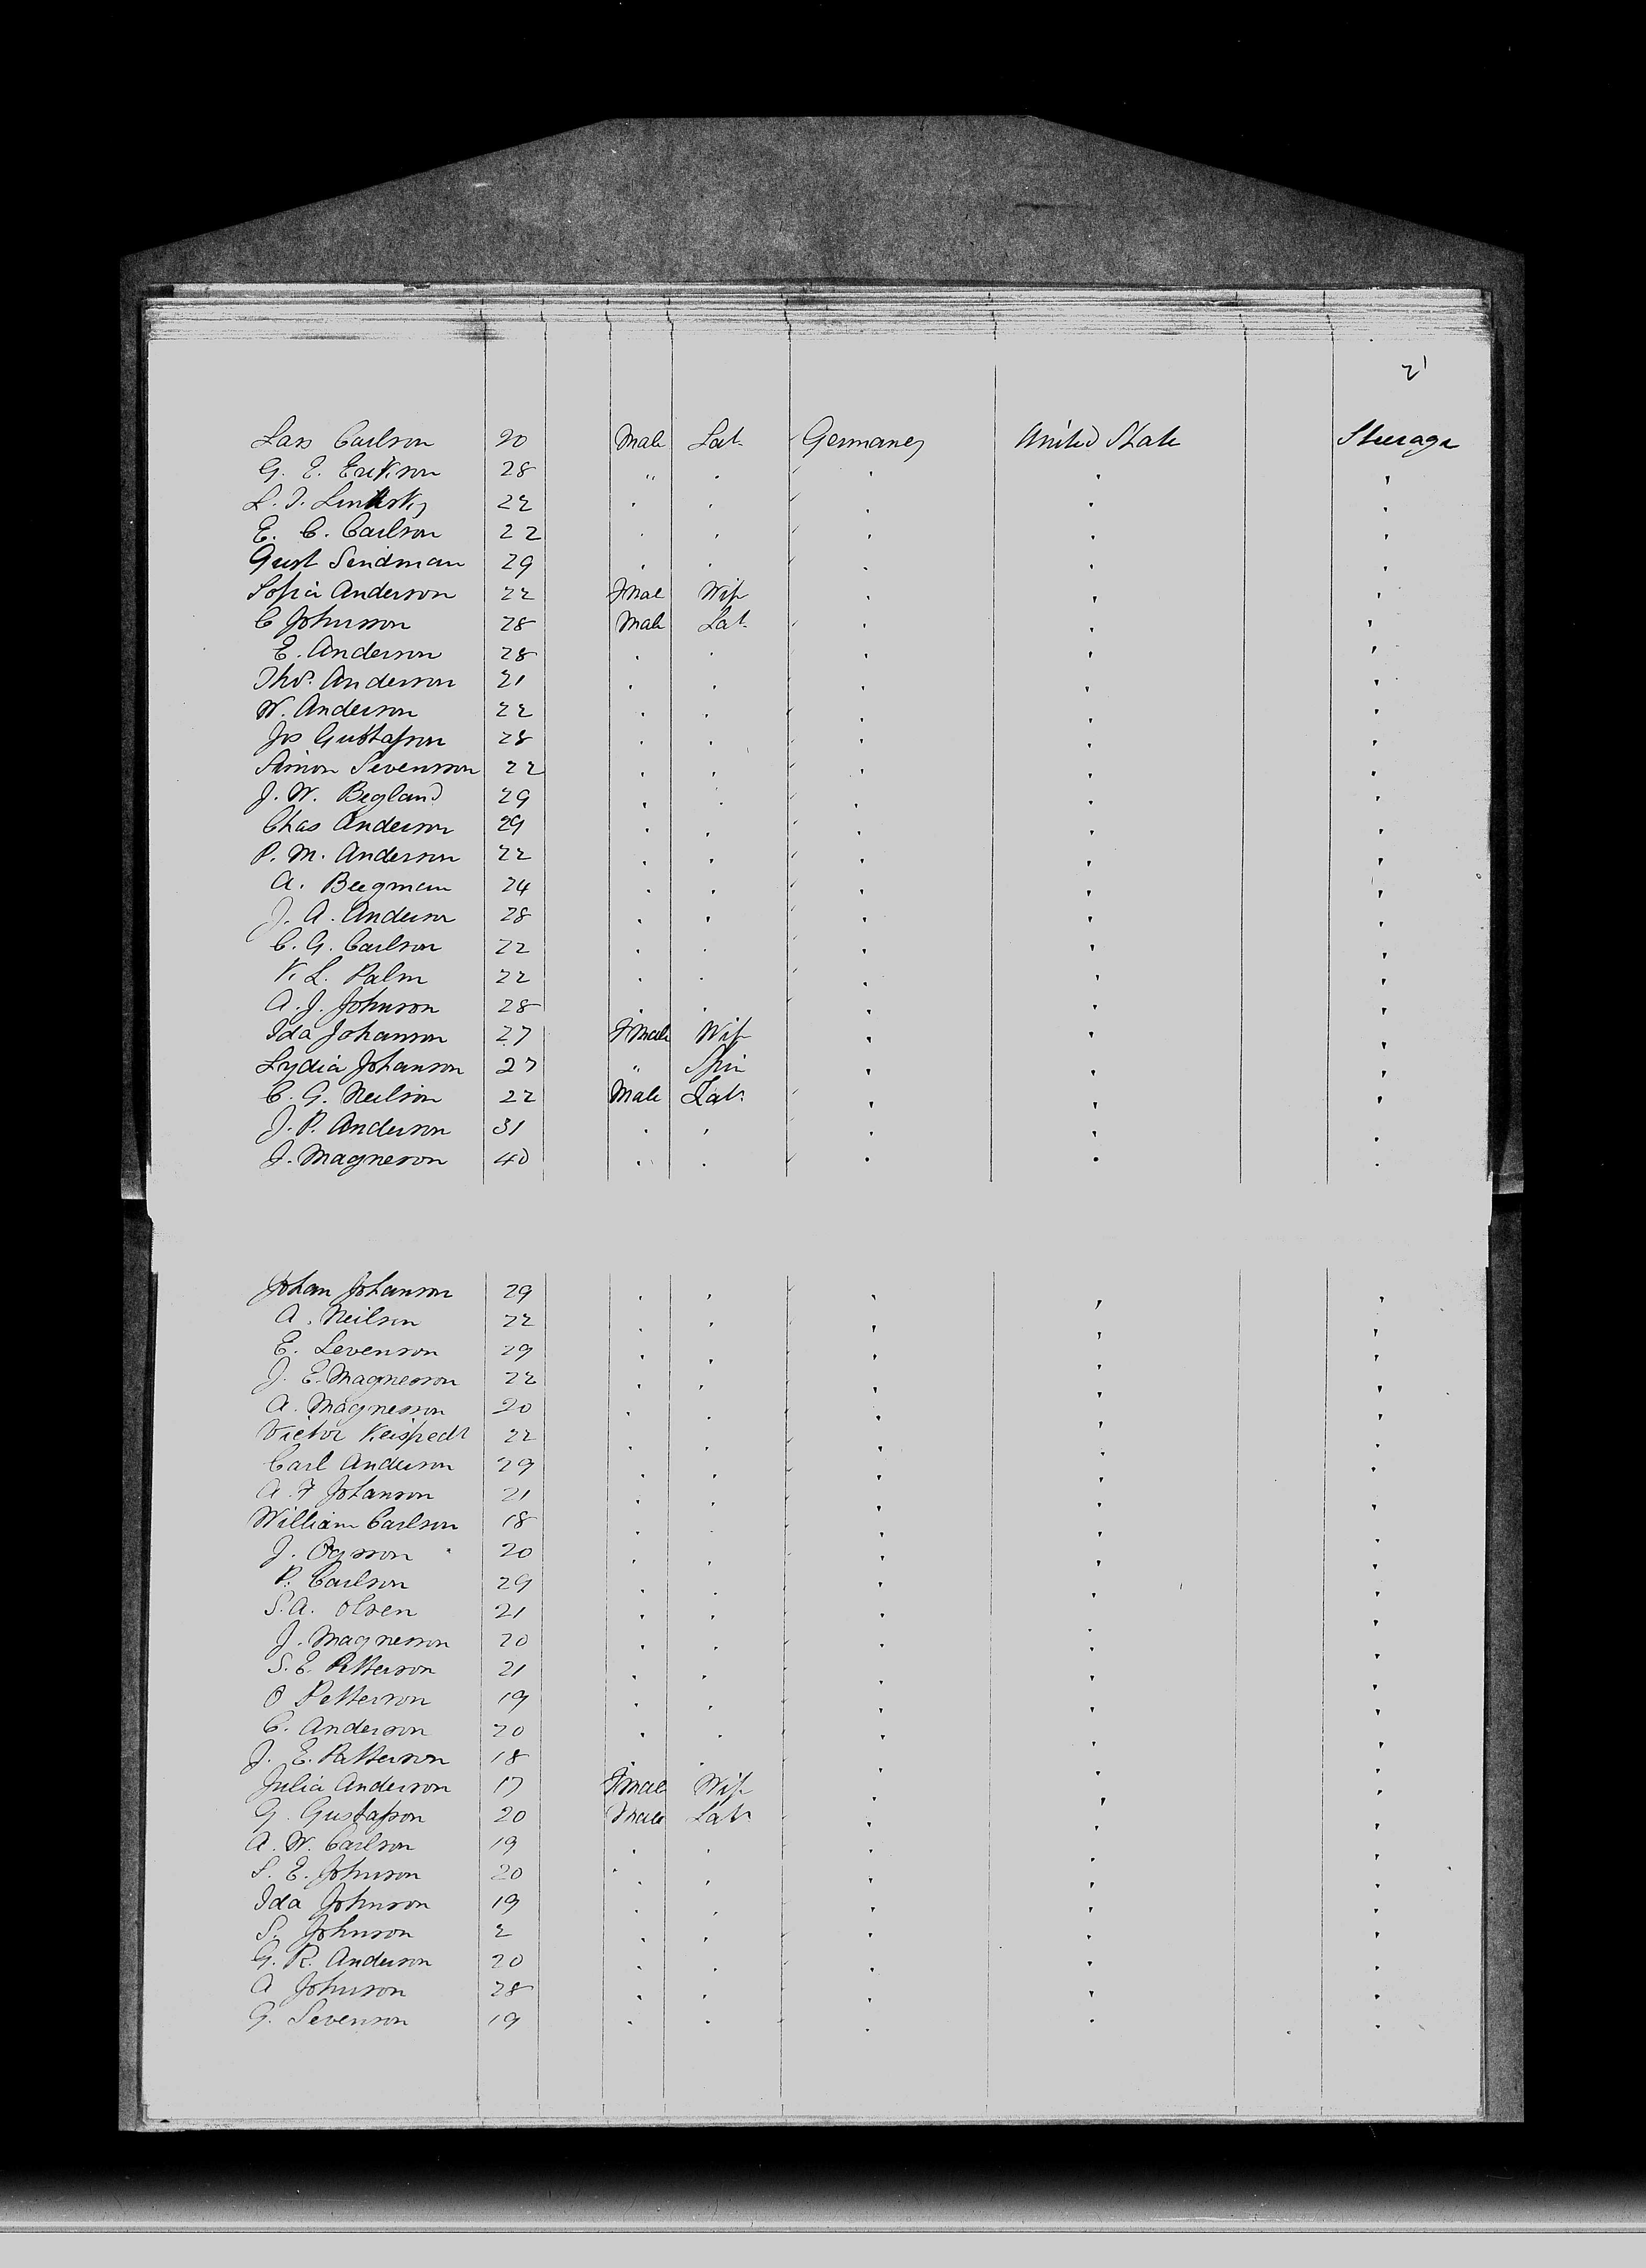 21
Lars Carlson 20 Male Lab. Germany United State Steerage
G. E. Erikson 28 " . . . .
L. J. 22 . . . . .
E. C. Carlson 22 . . . . .
Gust Sindman 29 . . . . .
Sofia Anderson 22 Fmal Wife . . .
C Johnson 28 Male Lab. . . .
E. Anderson 28 . . . . .
Tho. Anderson 21 . . . . .
W. Anderson 22 . . . . .
Jos Gustafson 28 . . . . .
Simon Sevensson 22 . . . . .
J. W. Begland 29 . . . . .
Chas Anderson 29 . . . . .
P. M. Anderson 22 . . . . .
A. Beegman 24 . . . . .
J. A. Anderson 28 . . . . .
C. G. Carlson 22 . . . . .
K. L. Palm 22 . . . . .
A. J. Johnson 28 . . . . .
Ida Johanson 27 Fmale Wife . . .
Lydia Johanson 27 " Spin . . .
C. G. Neilson 22 Male Lab. . . .
J. P. Anderson 31 . . . . .
J. Magneson 40 . . . . .
Johan Johanson 29 . . . . .
A. Neilson 22 . . . . .
E. Levenson 29 . . . . .
J. E. Magnesson 22 . . . . .
A. Magnesson 20 . . . . .
Victor 22 . . . . .
Carl Anderson 29 . . . . .
A. F Johanson 21 . . . . .
William Carlson 18 . . . . .
J. 20 . . . . .
P. Carlson 29 . . . . .
S. A. Olsen 21 . . . . .
J. Magnesson 20 . . . . .
S. E. Petterson 21 . . . . .
O Petterson 19 . . . . .
C. Anderson 20 . . . . .
J. E. Petterson 18 . . . . .
Julia Anderson 17 Fmale Wife . . .
G. Gustafson 20 Male Lab. . . .
A. W. Carlson 19 . . . . .
S. E. Johnson 20 . . . . .
Ida Johnson 19 . . . . .
S. Johnson 2 . . . . .
G. R. Anderson 20 . . . . .
A Johnson 28 . . . . .
G. Sevenson 19 . . . . .